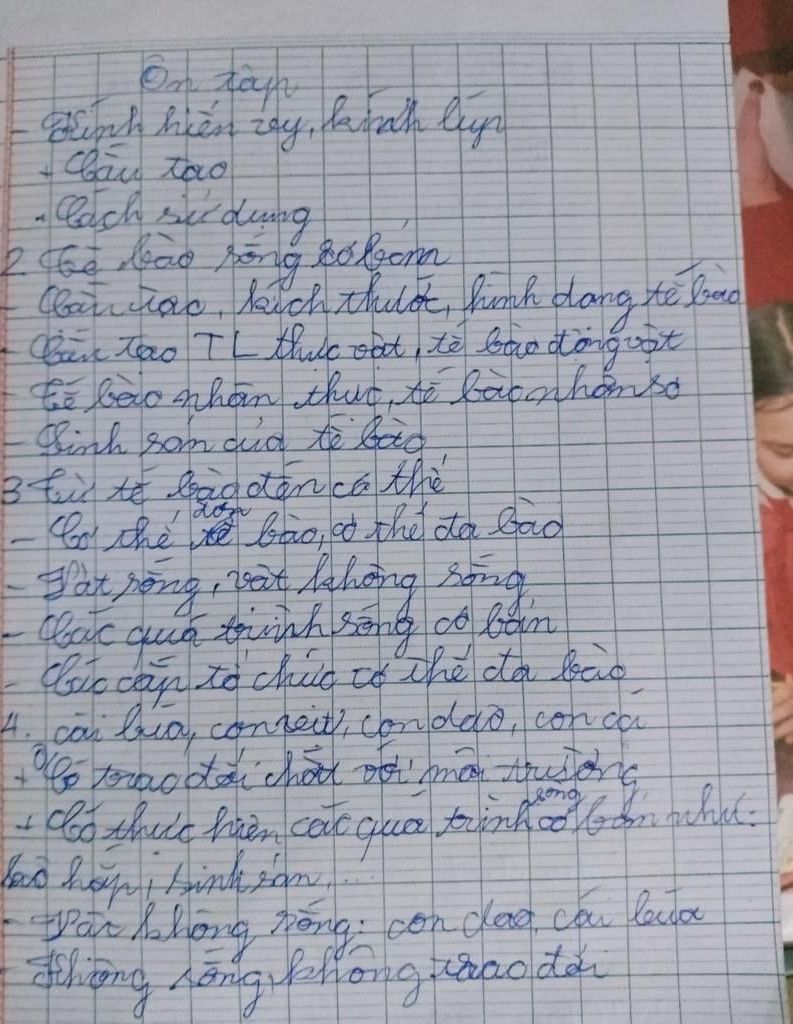 Ôn tập
- Kính hiển vy, kính lúp
+ Cấu tạo
- Cách sử dụng
2 Tế bào sống cơ bản
- Cấu tạo, kích thước, hình dạng tế bào
- Cấu tạo TL thực vật, tế bào động vật
- Tế bào nhân thực, tế bào nhân sơ
- Sinh sản của tế bào
3 Từ tế bào đến cơ thể
- Cơ thể đơn bào, cơ thể đa bào
- Vật sống, vật không sống
- Các quá trình sống cơ bản
- Các cấp tổ chức cơ thể đa bào
4. cái búa, con, con dao, con cá
+ Có trao đổi chất với môi trường
+ Có thực hiện các quá trình sống cơ bản như:
hô hấp, sinh sản,...
- Vật không sống: con dao, cái búa
- Không sống, không trao đổi